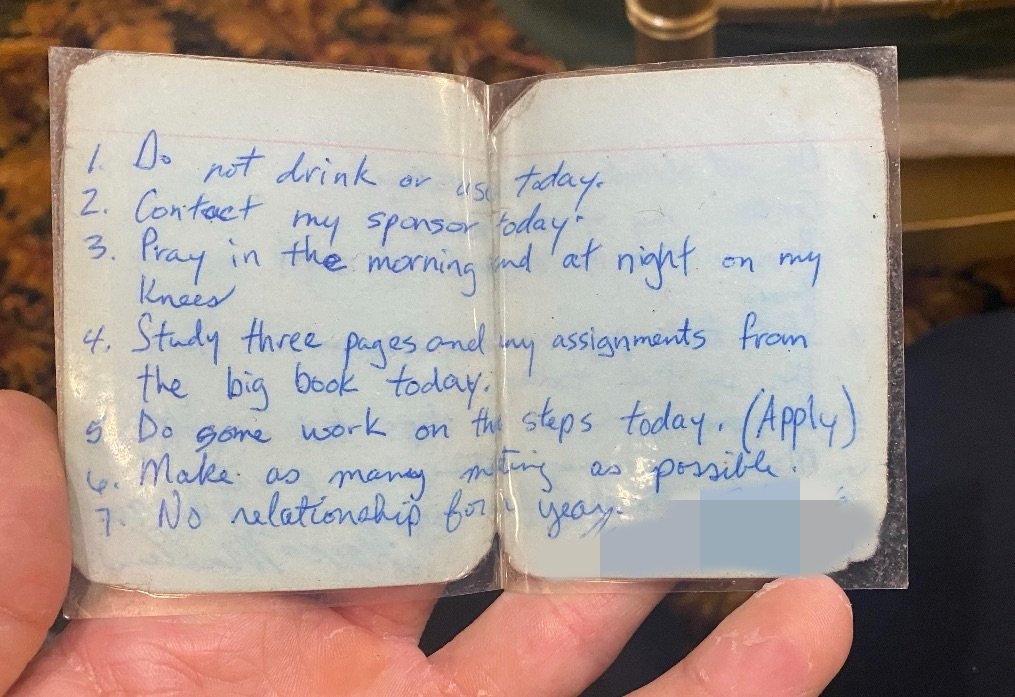 1. Do not drink or use today.
2. Contact my sponsor today.
3. Pray in the morning and at night on my
Knees
4. Study three pages and my assignments from
the big book today.
5 Do some work on the steps today. (Apply)
6. Make as many meting as possible.
7. No relationship for a year.